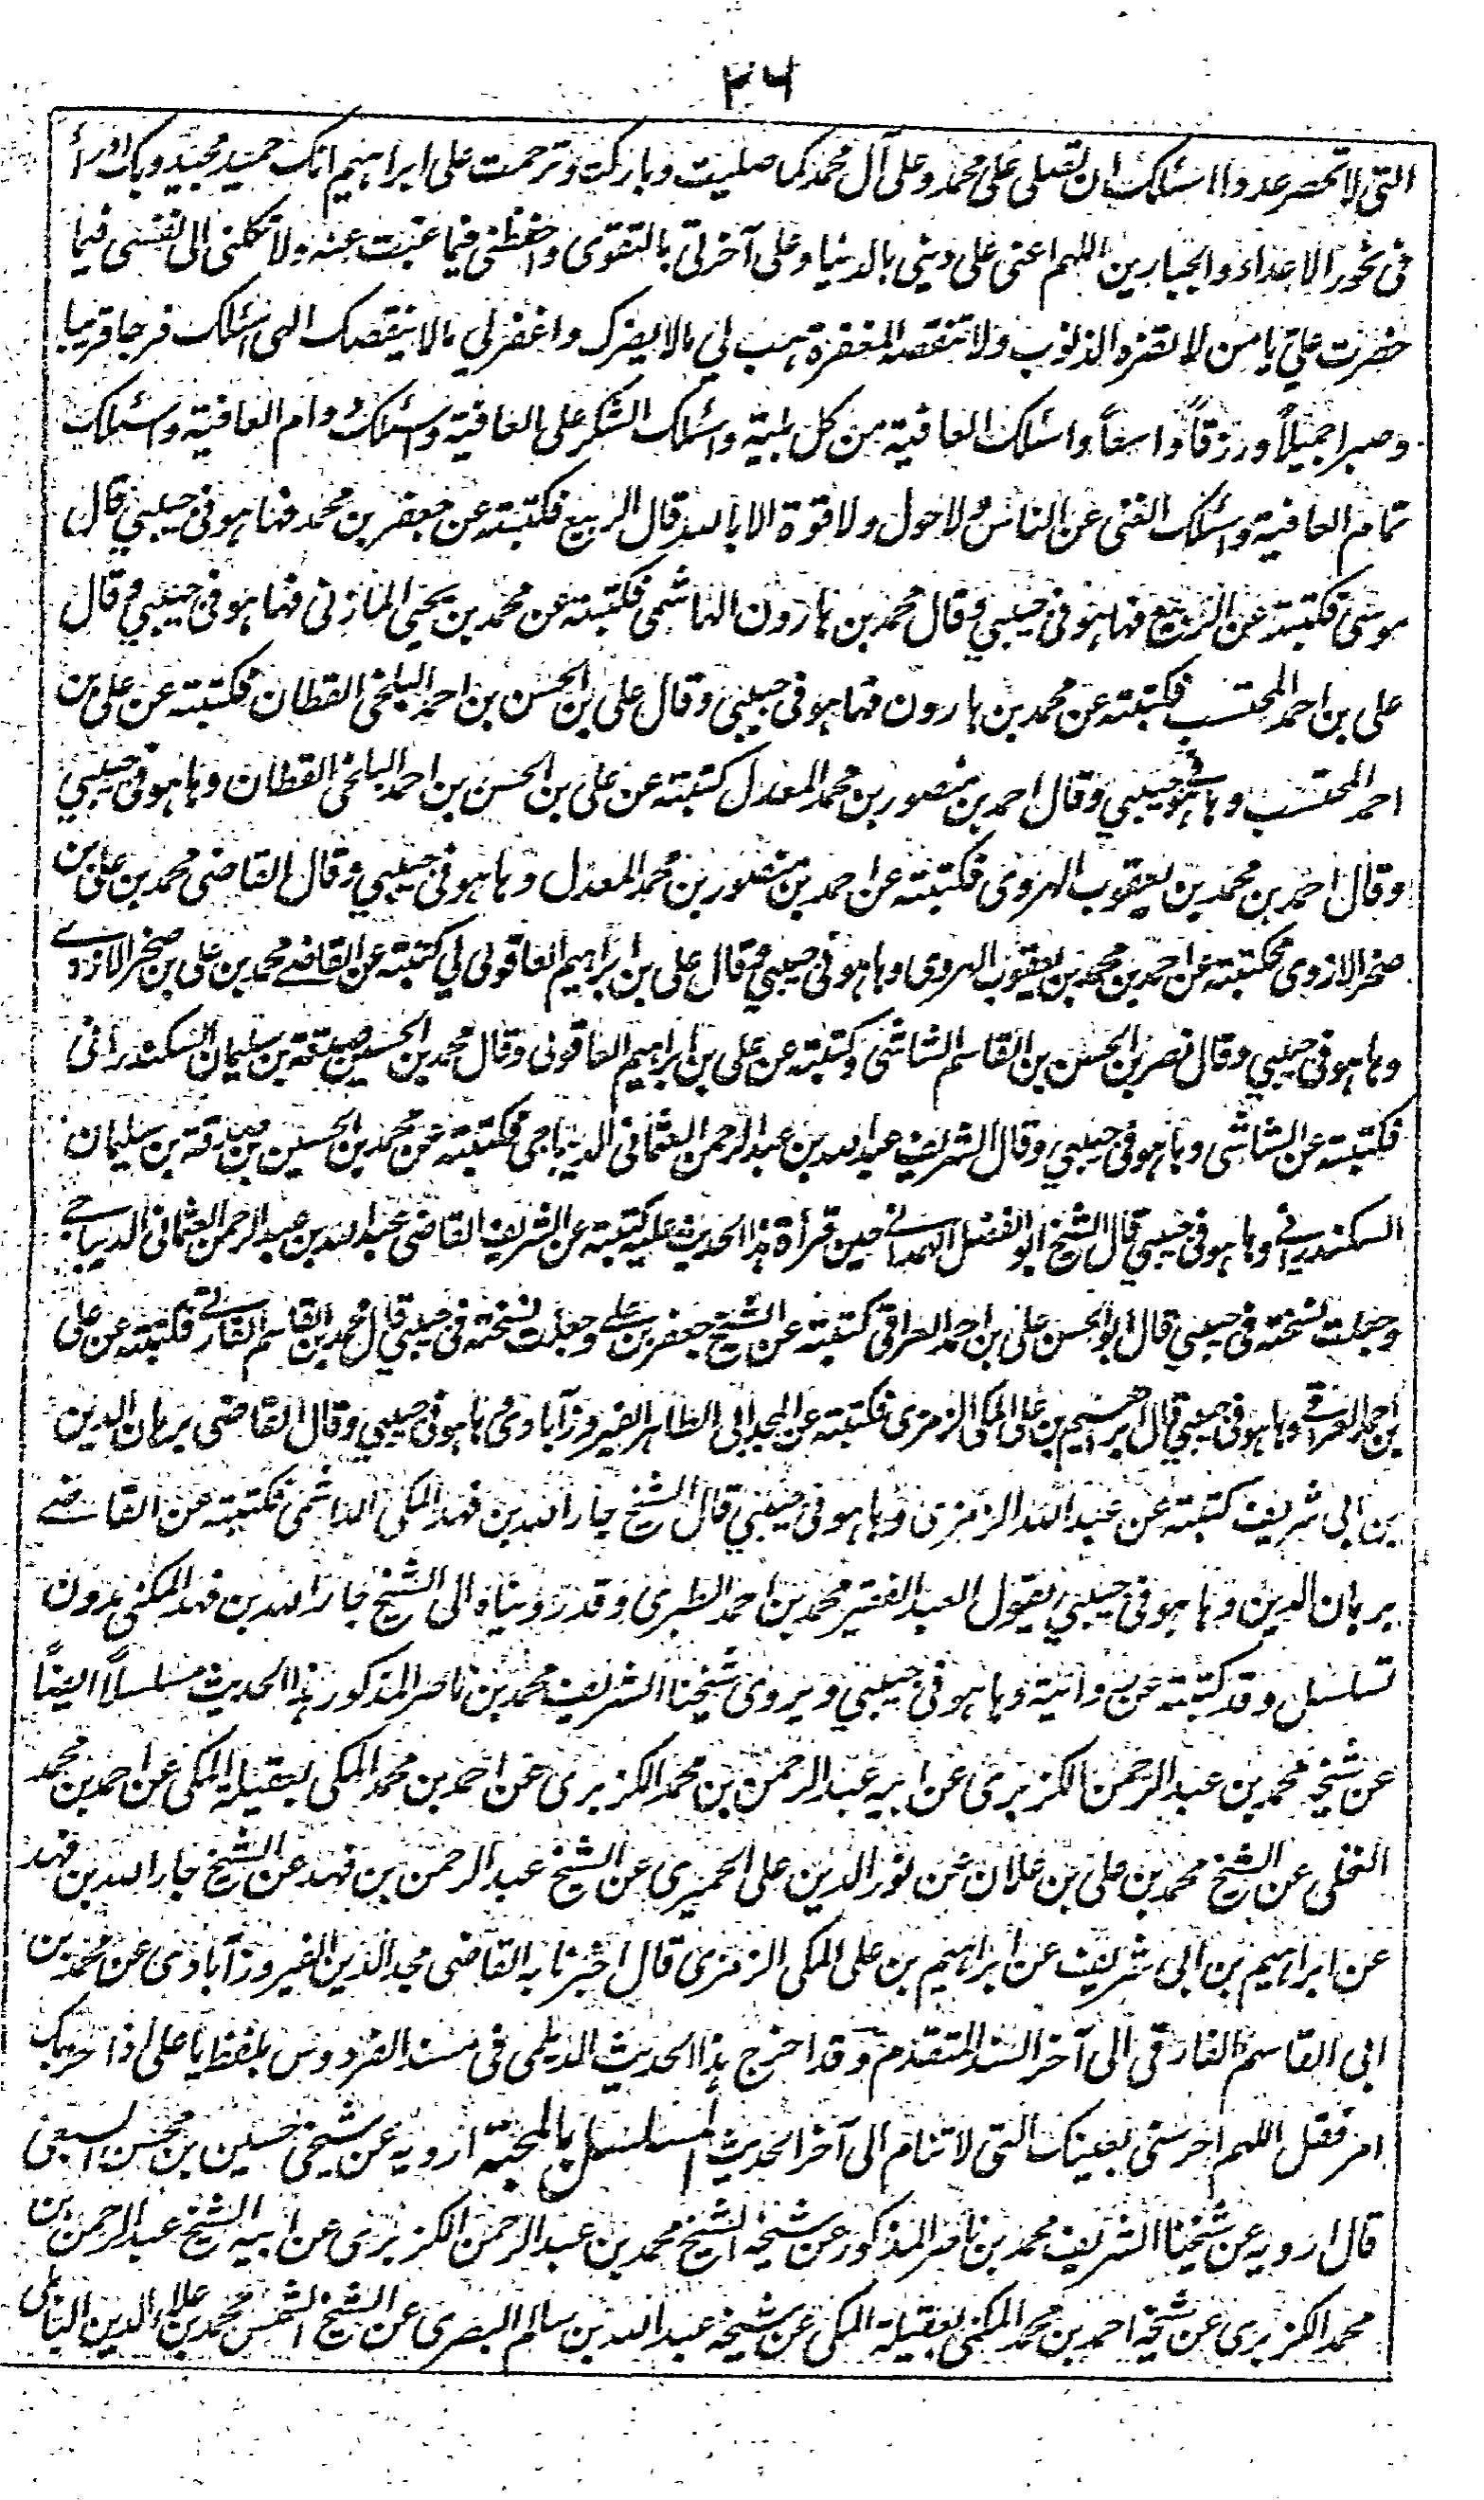 ٣٦
التى لا تحصر عددا اسئلك ان تصلى على محمد وعلى آل محمد كما صليت وباركت وترحمت على ابراهيم انك حميد مجيد وبك ادرأ
فى نحور الاعداء والجبارين اللهم اعنى على دينى بالدنيا وعلى آخرتى بالتقوى واحفظنى فيما غبت عنه ولا تكلنى الى نفسى فيما
حضرت على يا من لا تضره الذنوب ولا تنقصه المغفرة هب لي مالا يضرك واغفرلي مالا ينقصك الهى اسئلك فرجا قريبا
وصبرا جميلاً ورزقاً واسعاً واسئلك العافية من كل بلية واسئلك الشكر على العافية واسئلك دوام العافية واسئلك
تمام العافية واسئلك الغنى عن الناس ولا حول ولا قوة الا بالله قال الربيع فكتبته عن جعفر بن محمد فها هو فى جيبي قال
موسى فكتبته عن الربيع فها هو فى جيبي وقال محمد بن هارون الهاشمى فكتبته عن محمد بن يحيى المازنى فها هو فى جيبي وقال
على بن احمد المحتسب فكتبته عن محمد بن هارون فها هو فى جيبي وقال على بن الحسن بن احمد البلخى القطان فكتبته عن على بن
احمد المحتسب وها هو فى جيبي وقال احمد بن منصور بن محمد المعدل كتبته عن على بن الحسن بن احمد البلخى القطان وها هو فى جيبي
وقال احمد بن محمد بن يعقوب الهروى فكتبته عن احمد بن منصور بن محمد المعدل وها هو فى جيبي وقال القاضى محمد بن على بن
صخر الازدى فكتبته عن احمد بن محمد بن يعقوب الهروى وها هو فى جيبي وقال على بن ابراهيم العاقولى لي كتبته عن القاضے محمد بن على بن صخر الازدے
وها هو فى جيبي وقال نصر بن الحسن بن القاسم الشاشى وكتبته عن على بن ابراهيم العاقولى وقال محمد بن الحسين بن صدقة بن سليمان السكندرانى
فكتبته عن الشاشى وها هو فى جيبي وقال الشريف عبد الله بن عبد الرحمن العثمانى الديباجى فكتبته عن محمد بن الحسين بن صدقة بن سليمان
السكندرانے وها هو فى جيبي قال الشيخ ابو الفضل الهمدانے حين قرأة هذا الحديث عليه كتبته عن الشريف القاضى عبد الله بن عبد الرحمن العثمانى الديباجے
وجعلت نسخته فى جيبي قال ابو الحسن على بن احمد العراقى كتبته عن الشيخ جعفر بن على وجعلت نسخته فى جيبي قال محمد بن القاسم الفارقے فكتبته عن على
بن احمد العراقے وها هو فى جيبي قال ابراهيم بن على المكى الزمزمى فكتبته عن المجد ابى الطاهر الفيروزآبادى وها هو فى جيبي وقال القاضى برهان الدين
بن ابى شريف كتبته عن عبد الله الزمزمى وها هو فى جيبي قال الشيخ جار الله بن فهد المكى الهاشمى فكتبته عن القاضے
برهان الدين وها هو فى جيبي يقول العبد الفقير محمد بن احمد الطبرى وقد رويناه الى الشيخ جار الله بن فهد المكى بدون
تسلسل وقد كتبته عن رواتية وها هو فى جيبي ويروى شيخنا الشريف محمد بن ناصر المذكور هذا الحديث مسلسلاً ايضاً
عن شيخه محمد بن عبد الرحمن الكزبرى عن ابيه عبد الرحمن بن محمد الكزبرى عن احمد بن محمد المكى بعقيلة المكى عن احمد بن محمد
النخلى عن الشيخ محمد بن على بن علان عن نور الدين على الحميرى عن الشيخ عبد الرحمن بن فهد عن الشيخ جار الله بن فهد
عن ابراهيم بن ابى شريف عن ابراهيم بن على المكى الزمزمى قال اخبرنا به القاضى مجد الدين الفيروزآبادى عن محمد بن
ابى القاسم الفارقى الى آخر السند المتقدم وقد اخرج هذا الحديث الديلمى فى مسند الفردوس بلفظ يا على اذا حزبك
امر فقل اللهم احرسنى بعينك التى لا تنام الى آخر الحديث المسلسل بالمحبة ارويه عن شيخى حسين بن محسن السبعى
قال ارويه عن شيخنا الشريف محمد بن ناصر المذكور عن شيخه الشيخ محمد بن عبد الرحمن الكزبرى عن ابيه الشيخ عبد الرحمن بن
محمد الكزبرى عن شيخه احمد بن محمد المكى بعقيلة المكى عن شيخه عبد الله بن سالم البصرى عن الشيخ الشمس محمد بن علاء الدين البابلى